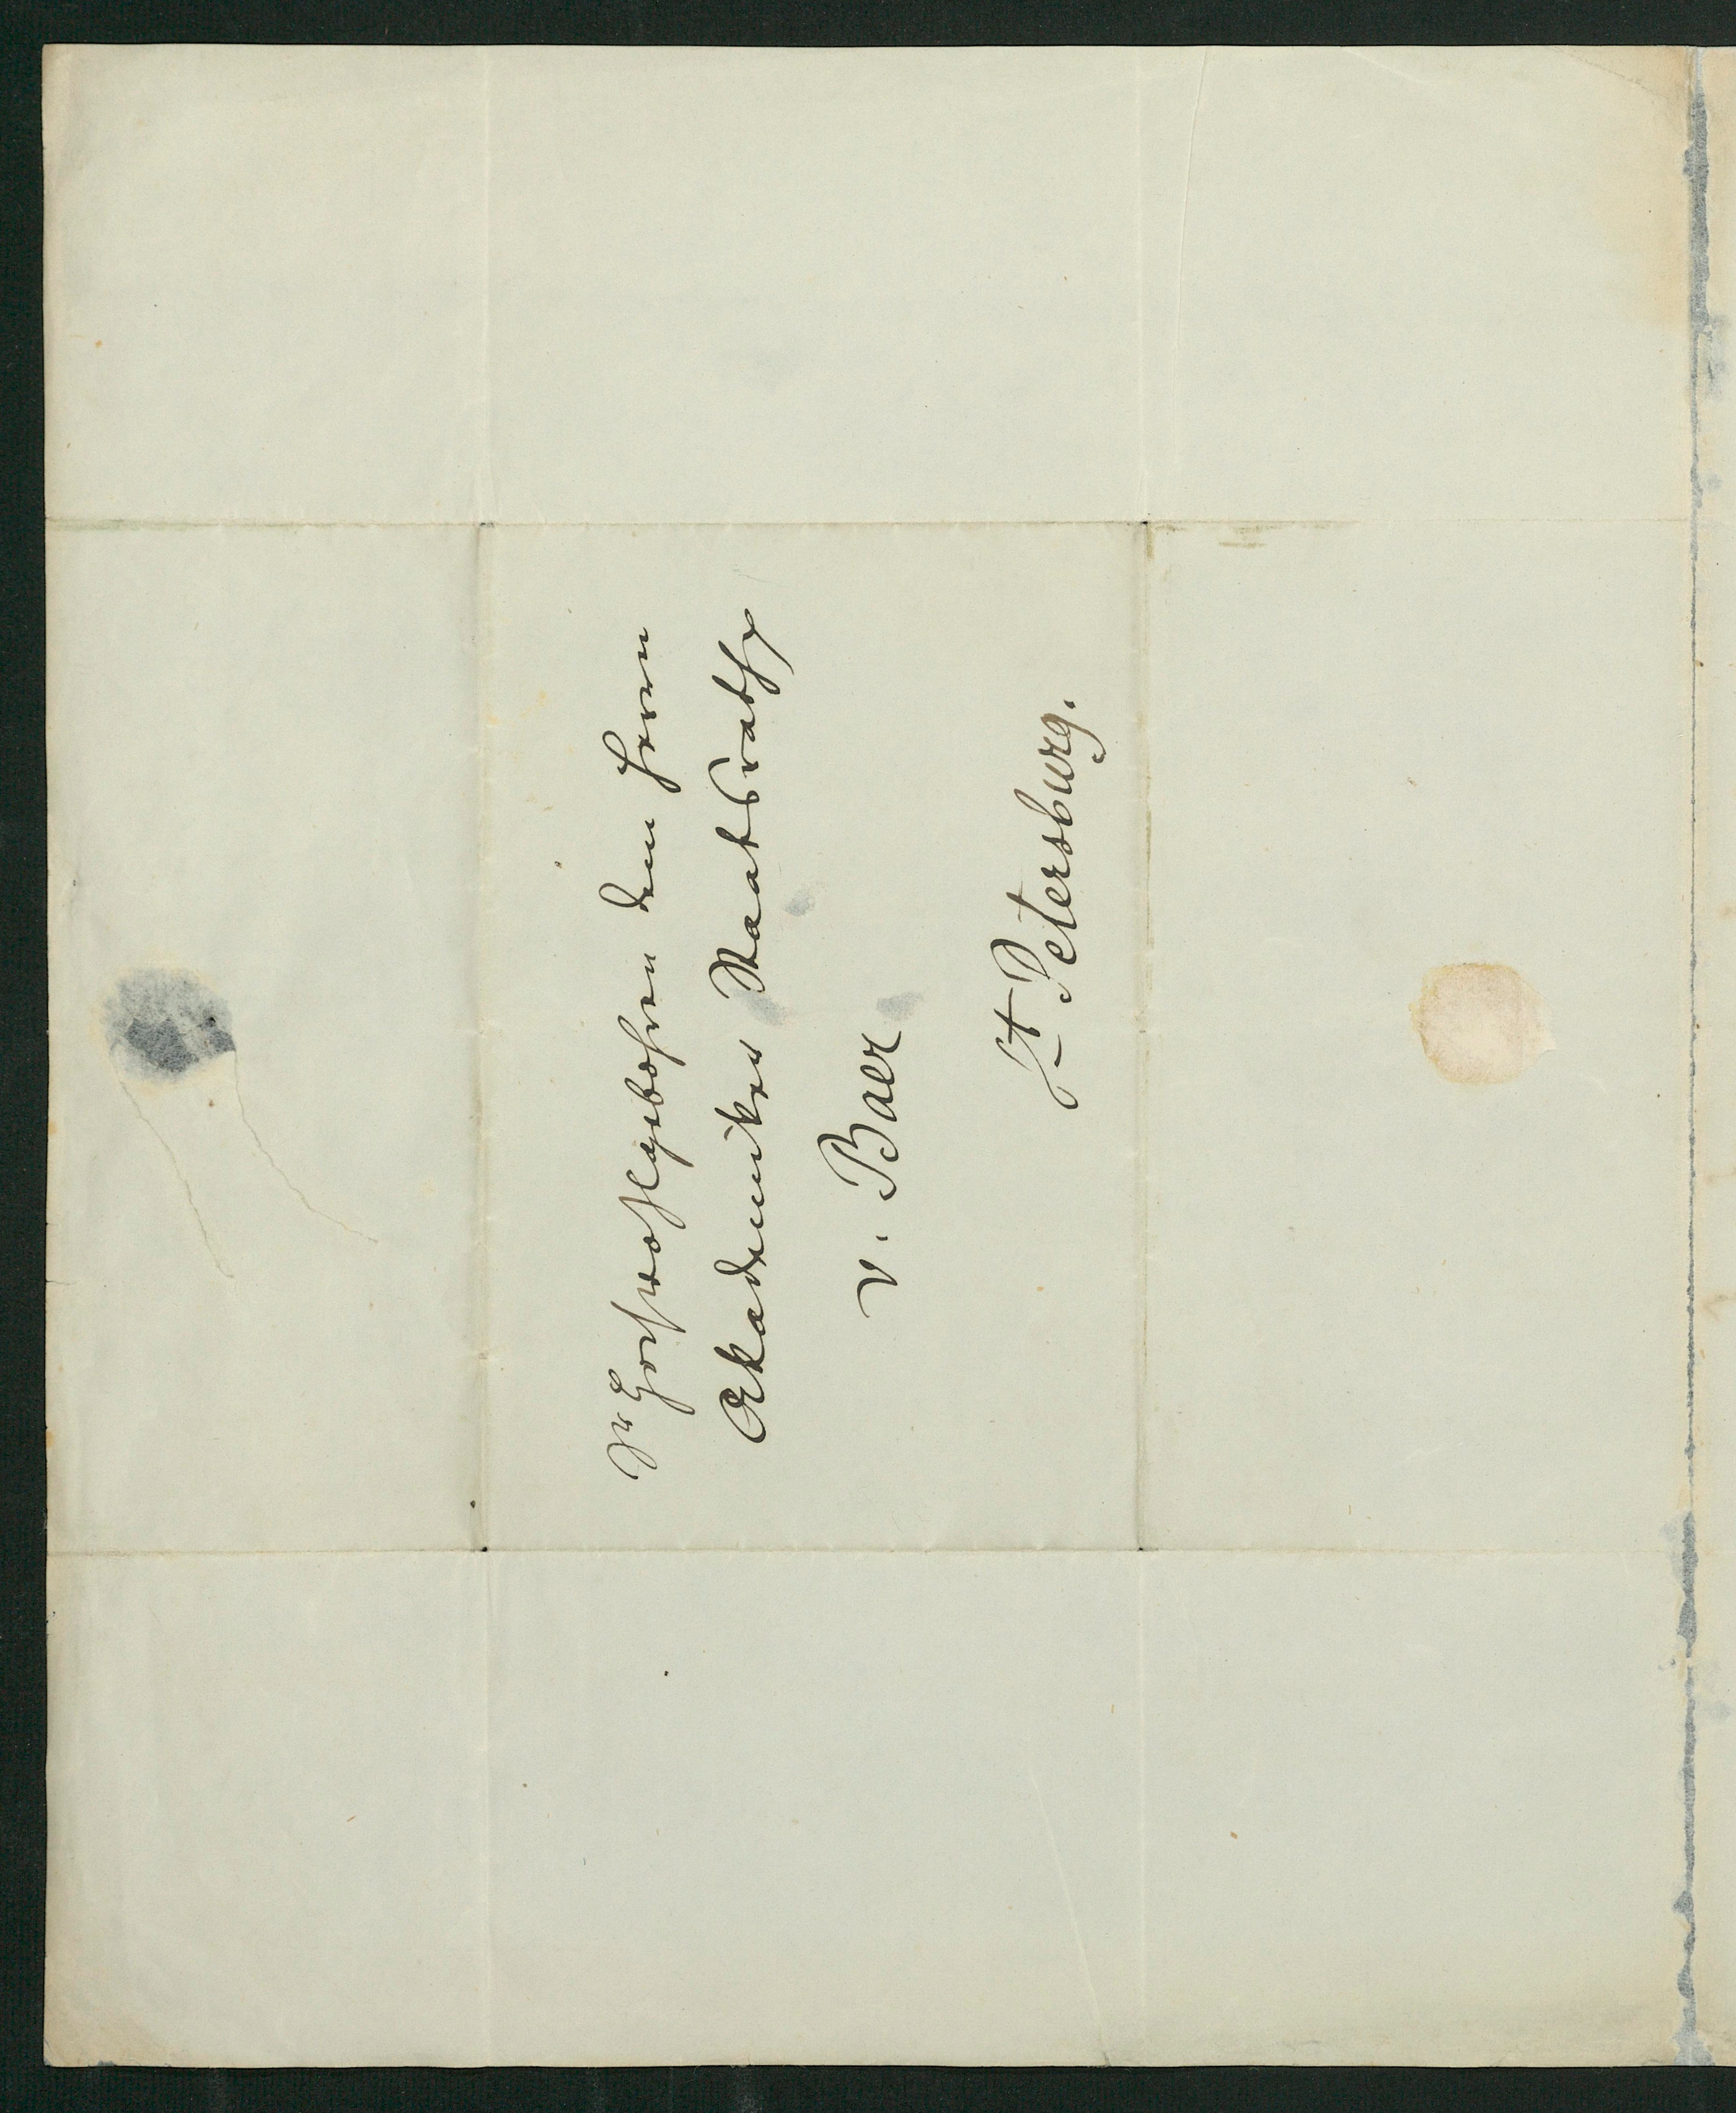 Sr Hochwohlgebohren dem Herrn
Akademiker Staatsrathe
v. Baer
St Petersburg.